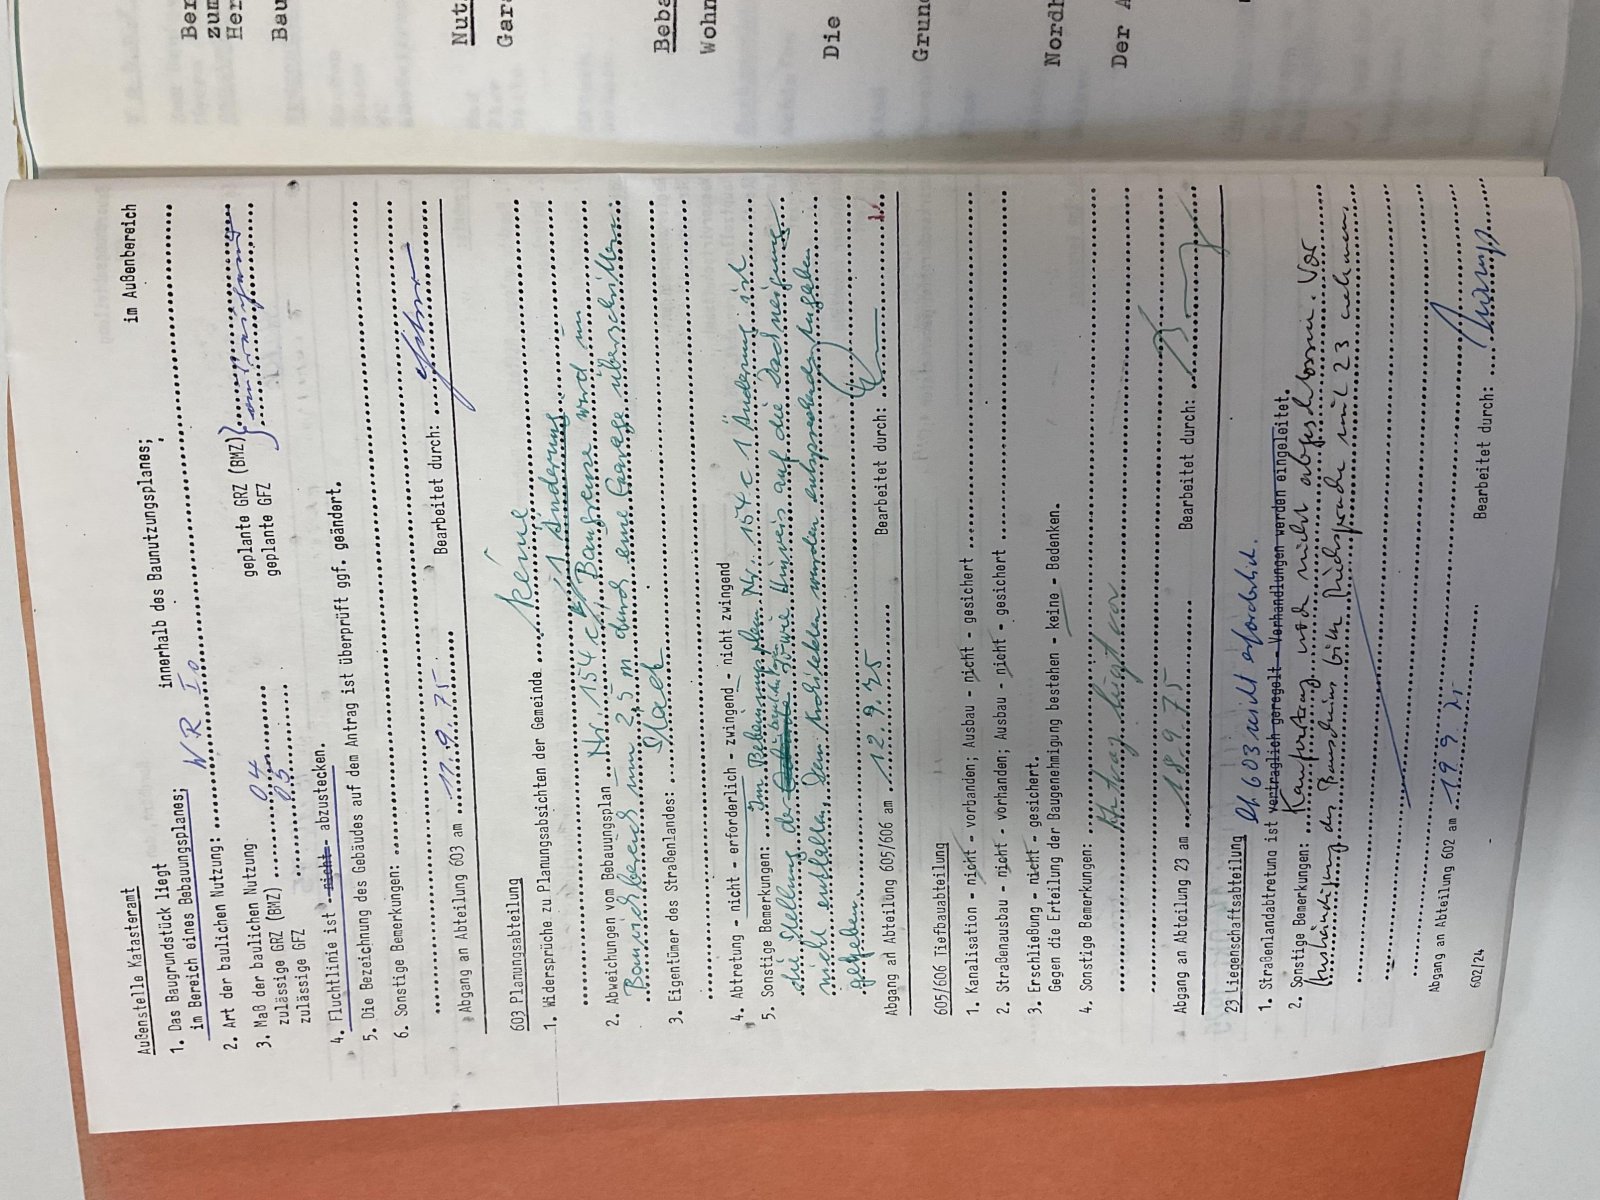 Ber
zum
Her
Bau
Nut
Gara
Beba
Wohn
Die
Grun
Nord
Der A
Außenstelle Katasteramt
1. Das Baugrundstück liegt innerhalb des Baunutzungsplanes; im Außenbereich
im Bereich eines Bebauungsplanes;
2. Art der baulichen Nutzung: WR Io
3. Maß der baulichen Nutzung
zulässige GRZ (BMZ) 0,4 geplante GRZ (BMZ)
zulässige GFZ 0,5 geplante GFZ
4. Fluchtlinie ist - nicht - abzustecken.
5. Die Bezeichnung des Gebäudes auf dem Antrag ist überprüft ggf. geändert.
6. Sonstige Bemerkungen:
Abgang an Abteilung 603 am 11.9.75 Bearbeitet durch:
603 Planungsabteilung
1. Widersprüche zu Planungsabsichten der Gemeinde keine
2. Abweichungen vom Bebauungsplan Nr. 154 c 1 Änderung
Baugrenze wird im
Bauwichbereich um 2,5 m durch eine Garage überschritten
3. Eigentümer des Straßenlandes: Stadt
4. Abtretung - nicht - erforderlich - zwingend - nicht zwingend
5. Sonstige Bemerkungen: Im Bebauungsplan Nr. 154 c 1 Änderung ist
die Stellung der sowie Hinweis auf die Dachneigung
nicht enthalten. Dem Architekten wurden entsprechende Angaben
gegeben
Abgang an Abteilung 605/606 am 12.9.75 Bearbeitet durch:
605/606 Tiefbauabteilung
1. Kanalisation - nicht - vorhanden; Ausbau - nicht - gesichert
2. Straßenausbau - nicht - vorhanden; Ausbau - nicht - gesichert
3. Erschließung - nicht - gesichert.
Gegen die Erteilung der Baugenehmigung bestehen - keine - Bedenken.
4. Sonstige Bemerkungen:
Antrag liegt vor
Abgang an Abteilung 23 am 18.9.75 Bearbeitet durch:
23 Liegenschaftsabteilung lt. 603 nicht erforderlich.
1. Straßenlandabtretung ist vertraglich geregelt - Verhandlungen werden eingeleitet.
2. Sonstige Bemerkungen: Kaufvertrag noch nicht abgeschlossen. Vor
Aushändigung des Bauscheins bitte Rücksprache mit 23 nehmen.
Abgang an Abteilung 602 am 19.9.75 Bearbeitet durch:
602/24